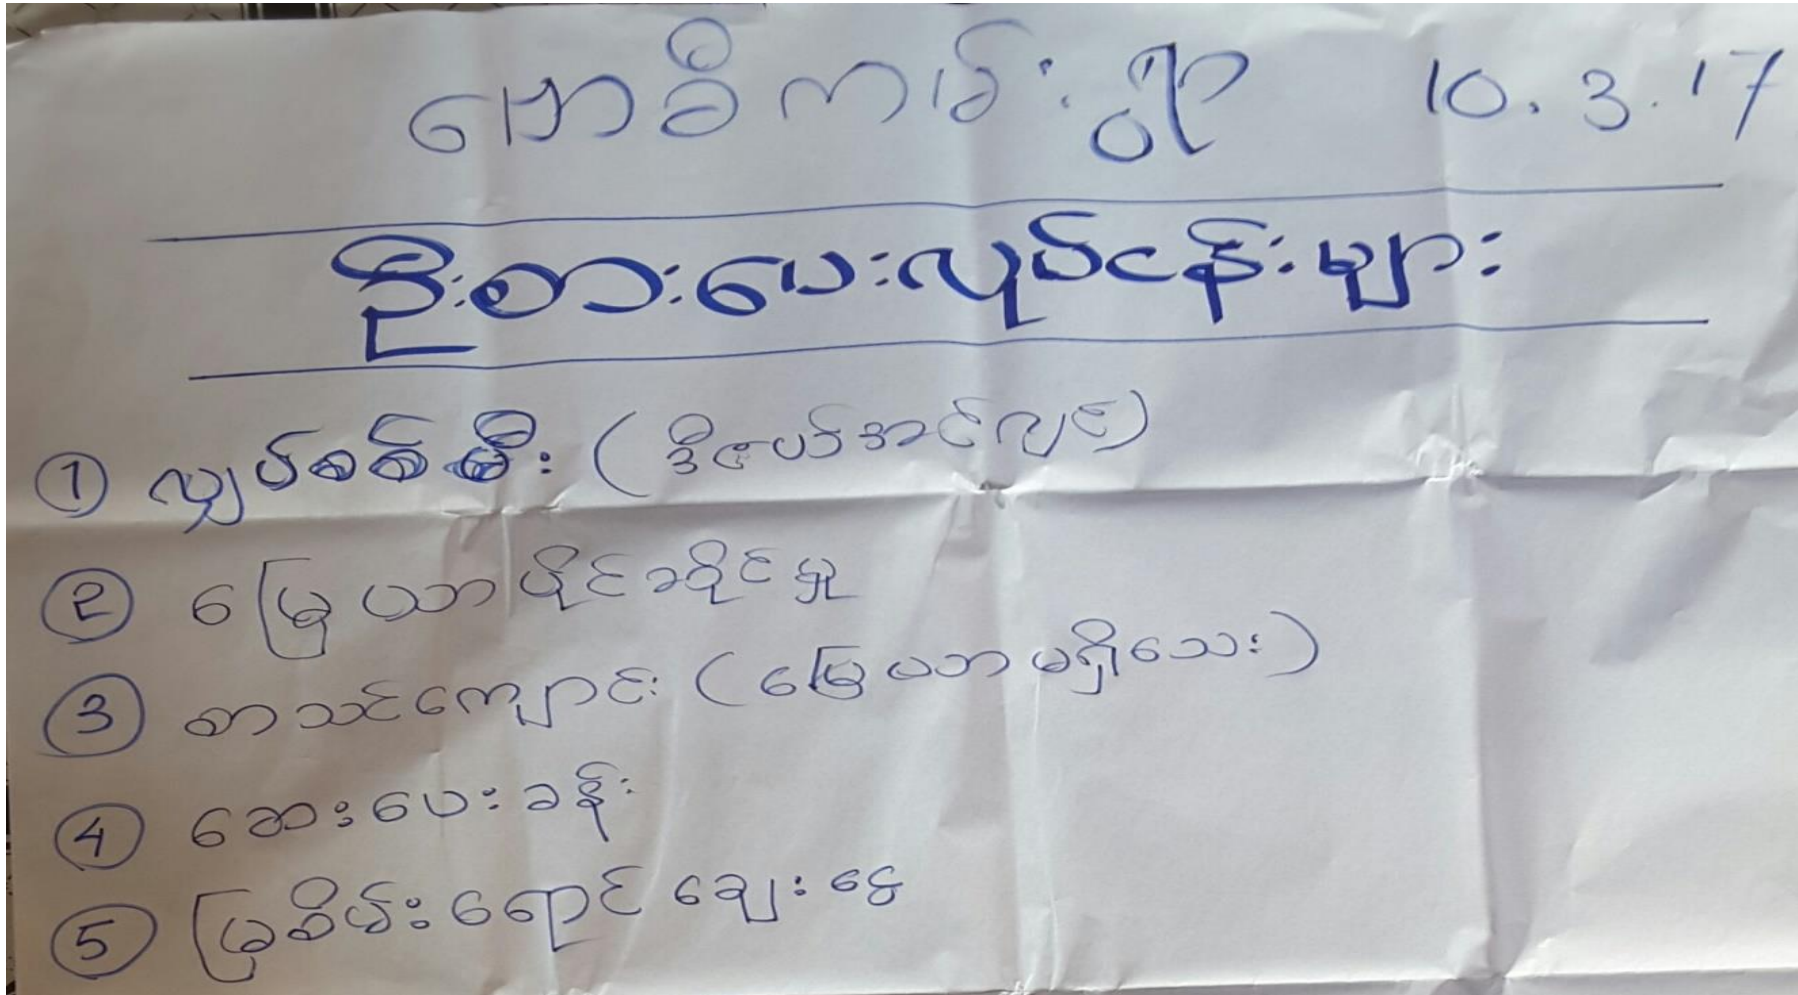 ဇောခိကမ်းရွာ 10.3.17
ဦးစားပေးလုပ်ငန်းများ
① လျှပ်စစ်မီး (ဒီဇယ်အင်ဂျင်)
② မြေယာပိုင်ဆိုင်မှု
③ စာသင်ကျောင်း (မြေယာမရှိသေး)
④ ဆေးပေးခန်း
⑤ မြစိမ်းရောင်ချေးငွေ